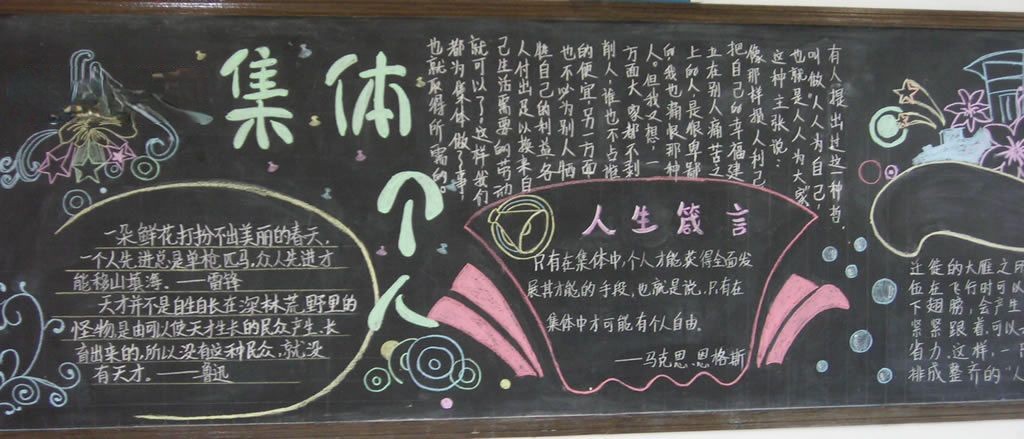 集体
个人
一朵鲜花打扮不出美丽的春天,
一个人先进总是单枪匹马,众人先进才
能移山填海。——雷锋
天才并不是自生自长在深林荒野里的
怪物,是由可以使天才生长的民众产生、长
育出来的,所以没有这种民众,就没
有天才。——鲁迅
有人提出过这一种哲
叫做“人人为自己,
也就是人人为大家
这种主张说:
像那样损人利己
把自己的幸福建
立在别人痛苦之
上的人是很卑鄙
的我也痛恨那种
人。但我又想:一
方面大家都不剥
削人,谁也不占谁
的便宜;另一方面
也不以为别人牺
牲自己的利益,各
人付出足以换来自
己生活需要的劳动
就可以了。这样我们
都为集体做了事
也就取得所需的。
人生箴言
只有在集体中,个人才能获得全面发
展其才能的手段,也就是说,只有在
集体中才可能有个人自由。
——马克思.恩格斯
迁徙的大雁之所
位在飞行时可以
下翅膀,会产生
紧紧跟着,可以
省力。这样,一
排成整齐的“人